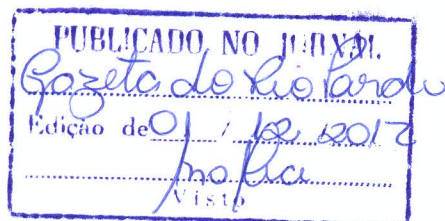 PUBLICADO NO JORNAL
Gazeta do Rio Pardo
Edição de 01 / 12 2012
Visto